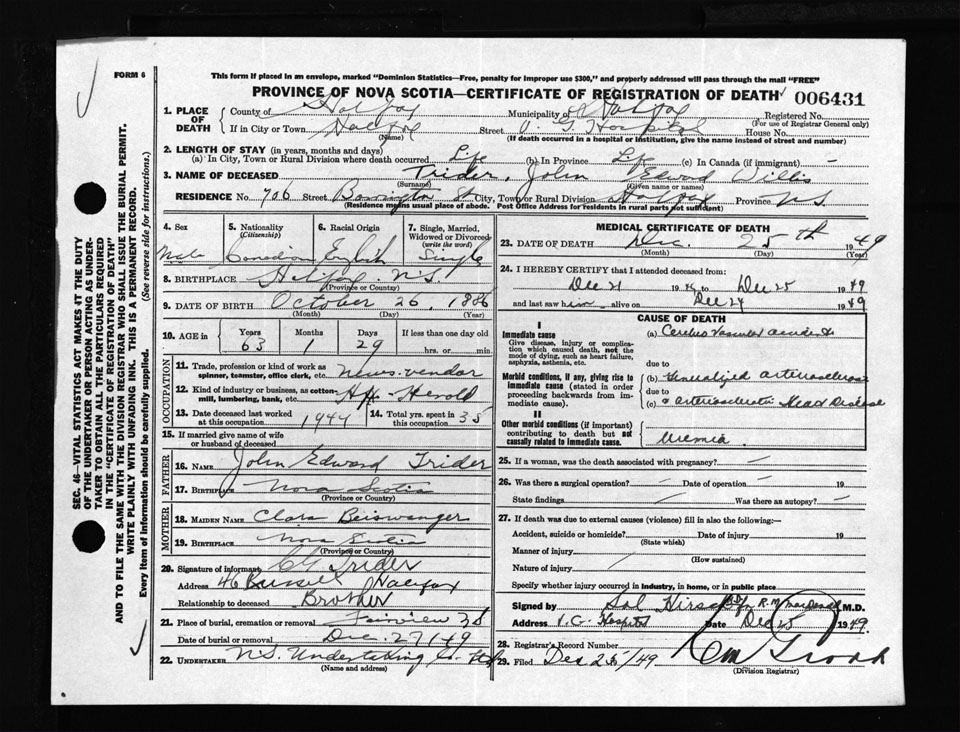 FORM 6
This form if placed in an envelope, marked "Dominion Statistics—Free, penalty for improper use $300," and properly addressed will pass through the mail "FREE"
PROVINCE OF NOVA SCOTIA—CERTIFICATE OF REGISTRATION OF DEATH 006431
1. PLACE OF DEATH County of Halifax Municipality of Halifax Registered No.
(For use of Registrar General only)
If in City or Town Halifax Street V. G. Hospital House No.
(Name) (If death occurred in a hospital or institution, give the name instead of street and number)
2. LENGTH OF STAY (in years, months and days)
(a) In City, Town or Rural Division where death occurred Life (b) In Province Life (c) In Canada (if immigrant) —
3. NAME OF DECEASED Trider, John Edward Willis
(Surname) (Given name or names)
RESIDENCE No. 706 Street Barrington St City, Town or Rural Division Halifax Province N.S.
(Residence means usual place of abode. Post Office Address for residents in rural parts not sufficient)
4. Sex Male
5. Nationality (Citizenship) Canadian
6. Racial Origin English
7. Single, Married, Widowed or Divorced (write the word) Single
8. BIRTHPLACE Halifax N.S.
(Province or Country)
9. DATE OF BIRTH October 26, 1886
(Month) (Day) (Year)
10. AGE in Years Months Days If less than one day old
63 1 29 hrs. or min.
OCCUPATION
11. Trade, profession or kind of work as spinner, teamster, office clerk, etc. News-vendor
12. Kind of industry or business, as cotton-mill, lumbering, bank, etc. Hfx-Herald
13. Date deceased last worked at this occupation 1944
14. Total yrs. spent in this occupation 35
15. If married give name of wife or husband of deceased
FATHER
16. NAME John Edward Trider
17. BIRTHPLACE Nova Scotia
(Province or Country)
MOTHER
18. MAIDEN NAME Clara Beiswanger
19. BIRTHPLACE Nova Scotia
(Province or Country)
20. Signature of informant Trider
Address 46 Russell Halifax
Relationship to deceased Brother
21. Place of burial, cremation or removal Fairview
Date of burial or removal Dec. 27/49
22. UNDERTAKER N.S. Undertaking Co. Ltd
(Name and address)
MEDICAL CERTIFICATE OF DEATH
23. DATE OF DEATH Dec. 25th 1949
(Month) (Day) (Year)
24. I HEREBY CERTIFY that I attended deceased from:
Dec 21 1949 to Dec 25 1949
and last saw him alive on Dec 24 1949
CAUSE OF DEATH
I
Immediate cause (a) Cerebro Vascular accident
Give disease, injury or complication which caused death, not the mode of dying, such as heart failure, asphyxia, asthenia, etc.
due to
Morbid conditions, if any, giving rise to immediate cause (stated in order proceeding backwards from immediate cause).
(b) Generalized arteriosclerosis
due to
(c) arteriosclerotic Heart Disease
II
Other morbid conditions (if important) contributing to death but not causally related to immediate cause.
Uremia
25. If a woman, was the death associated with pregnancy? —
26. Was there a surgical operation? — Date of operation — 19
State findings — Was there an autopsy? —
27. If death was due to external causes (violence) fill in also the following:—
Accident, suicide or homicide? Date of injury 19
(State which)
Manner of injury
(How sustained)
Nature of injury
Specify whether injury occurred in industry, in home, or in public place
Signed by Sol Hirsch M.D.
Address V.G. Hospital Date Dec 25 1949
28. Registrar's Record Number
29. Filed Dec 25/49
(Division Registrar)
SEC. 46—VITAL STATISTICS ACT MAKES IT THE DUTY
OF THE UNDERTAKER OR PERSON ACTING AS UNDER-
TAKER TO OBTAIN ALL THE PARTICULARS REQUIRED
IN THE "CERTIFICATE OF REGISTRATION OF DEATH"
AND TO FILE THE SAME WITH THE DIVISION REGISTRAR WHO SHALL ISSUE THE BURIAL PERMIT.
WRITE PLAINLY WITH UNFADING INK. THIS IS A PERMANENT RECORD.
Every item of information should be carefully supplied. (See reverse side for instructions.)